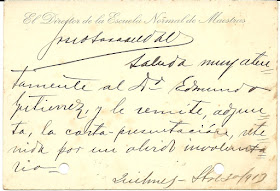 El Director de la Escuela Normal de Maestros
Saluda muy aten
tamente al Dr. Edmundo
Gutierrez, y le remite, adjun
ta, la carta-presentación, rete
nida por un olvido involunta
rio-
Quilmes-